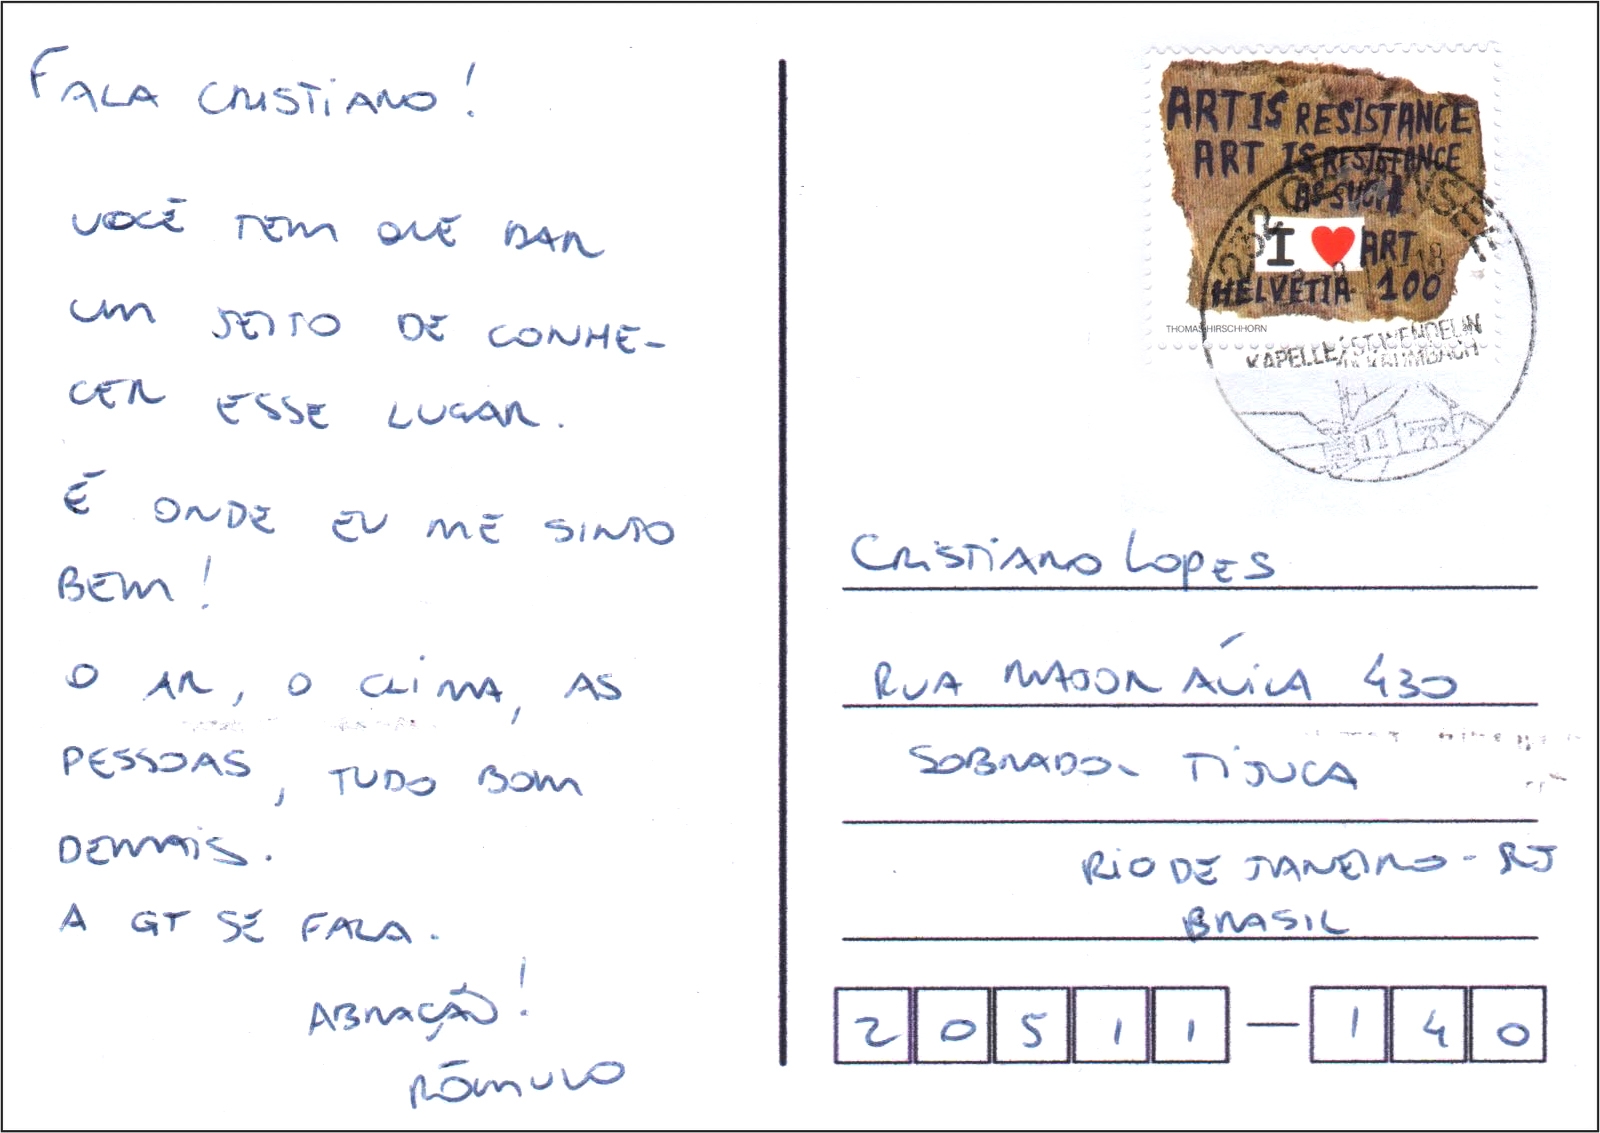 FALA CRISTIANO!
VOCÊ TEM QUE DAR
UM JEITO DE CONHE-
CER ESSE LUGAR.
É ONDE EU ME SINTO
BEM!
O AR, O CLIMA, AS
PESSOAS, TUDO BOM
DEMAIS.
A GT SE FALA.
ABRAÇÃO!
RÔMULO
ART IS RESISTANCE
ART IS RESISTANCE
AS SUCH
I ♥ ART
HELVETIA 100
THOMAS HIRSCHHORN
KAPELLE ST. WENDELIN
CRISTIANO LOPES
RUA MAJOR ÁVILA 430
SOBRADO - TIJUCA
RIO DE JANEIRO - RJ
BRASIL
20511-140